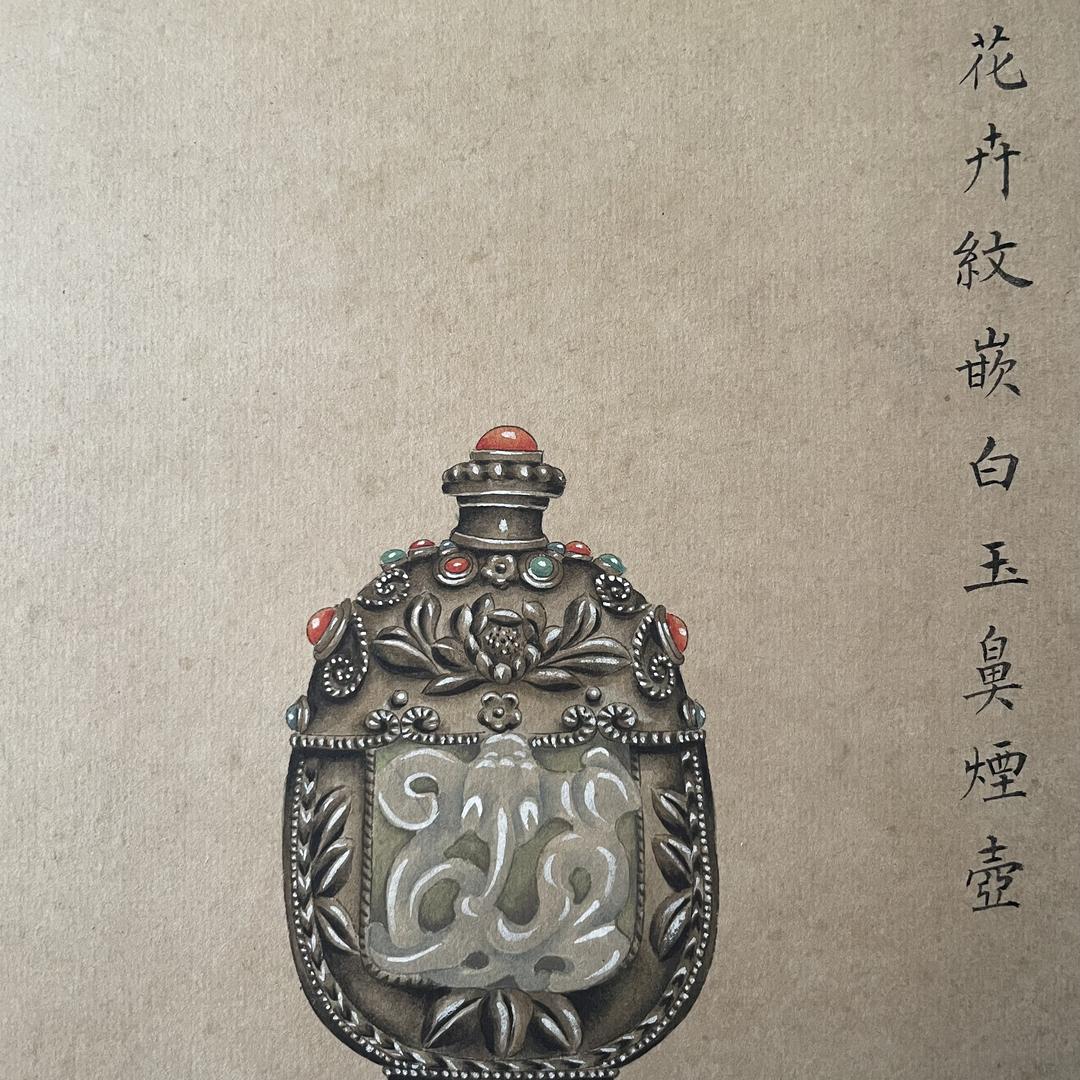 花卉紋嵌白玉鼻煙壺